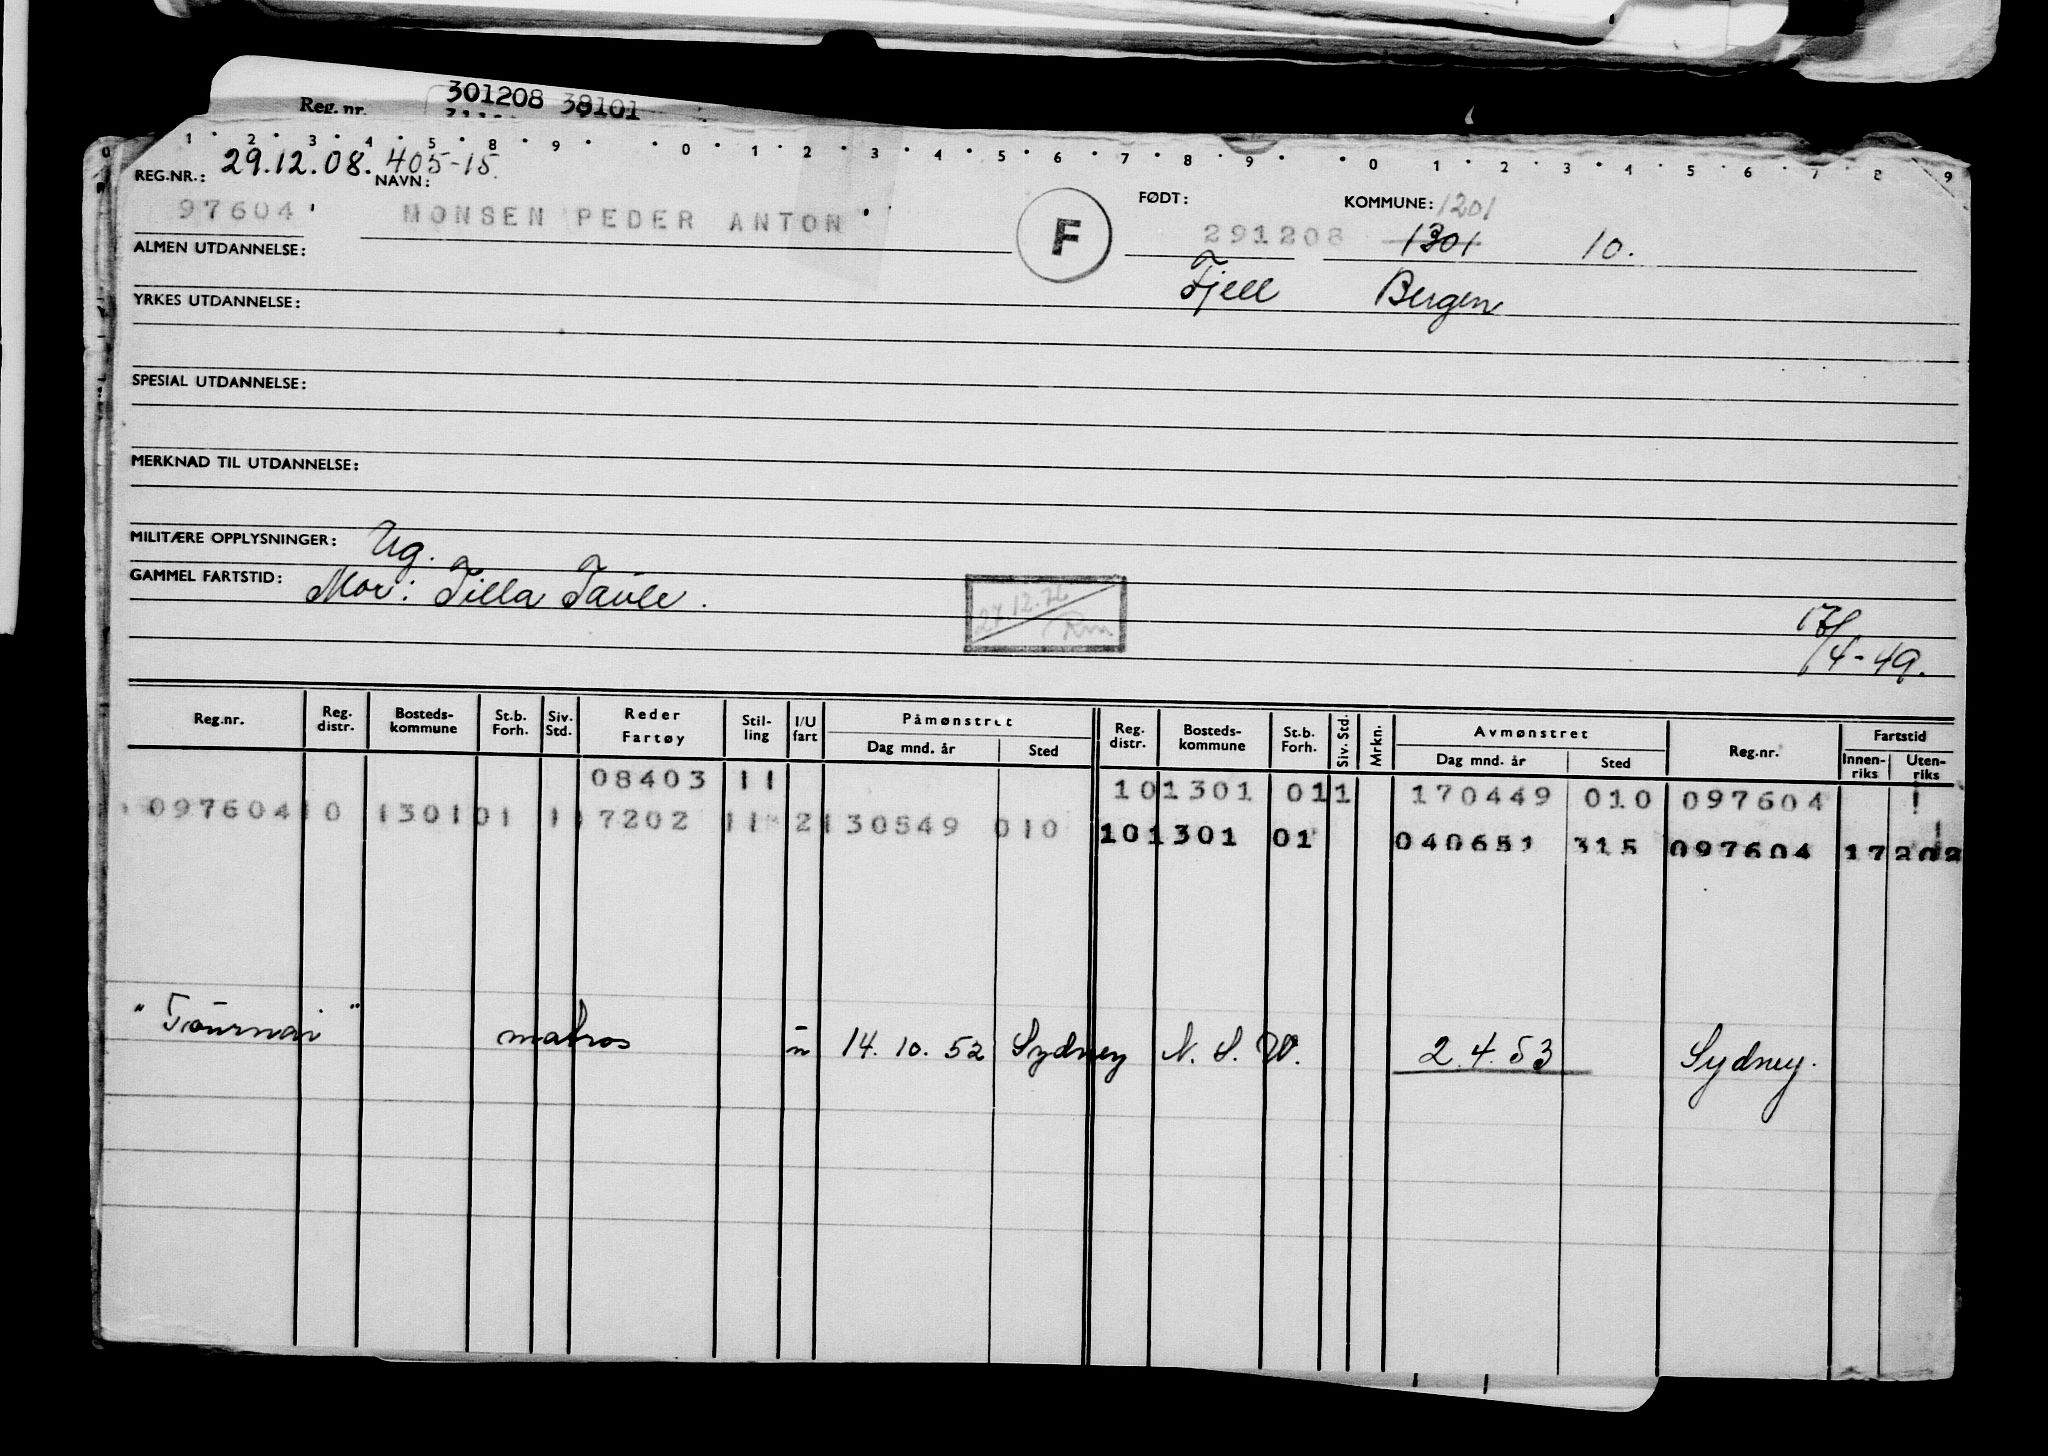 Reg. nr. 301208 38101
0 1 2 3 4 5 8 9 0 1 2 3 4 5 6 7 8 9 0 1 2 3 4 5 6 7 8 9
REG.NR.: 29.12.08. 405-15 NAVN: FØDT: KOMMUNE: 1201
97604 MONSEN PEDER ANTON F 291208 1301 10.
ALMEN UTDANNELSE: Fjell Bergen
YRKES UTDANNELSE:
SPESIAL UTDANNELSE:
MERKNAD TIL UTDANNELSE:
MILITÆRE OPPLYSNINGER: Ug.
GAMMEL FARTSTID: Mor: Tilla Taule.
27.12.76
/4-49.
Reg.nr. Reg. distr. Bosteds-kommune St.b. Forh. Siv. Std. Reder Fartøy Stil-ling I/U fart Påmønstret Dag mnd. år Sted Reg. distr. Bosteds-kommune St.b. Forh. Siv. Std. Mrkn. Avmønstret Dag mnd. år Sted Reg.nr. Fartstid Innen-riks Uten-riks
08403 11 101301 011 170449 010 097604
097604 10 130101 1 17202 11 2 130549 010 101301 01 040651 315 097604 17202
"Tournai" matros u 14. 10. 52 Sydney N. S. W. 2. 4. 53 Sydney.